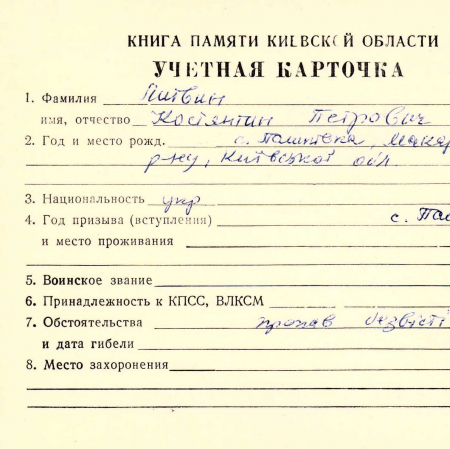 КНИГА ПАМЯТИ КИЕВСКОЙ ОБЛАСТИ
УЧЕТНАЯ КАРТОЧКА
1. Фамилия Литвин
имя, отчество Костянтин Петрович
2. Год и место рожд. с. Пашківка, Макар
р-ну, Київської обл.
3. Национальность укр
4. Год призыва (вступления) с. Паш
и место проживания
5. Воинское звание
6. Принадлежность к КПСС, ВЛКСМ
7. Обстоятельства пропав безвісті
и дата гибели
8. Место захоронения